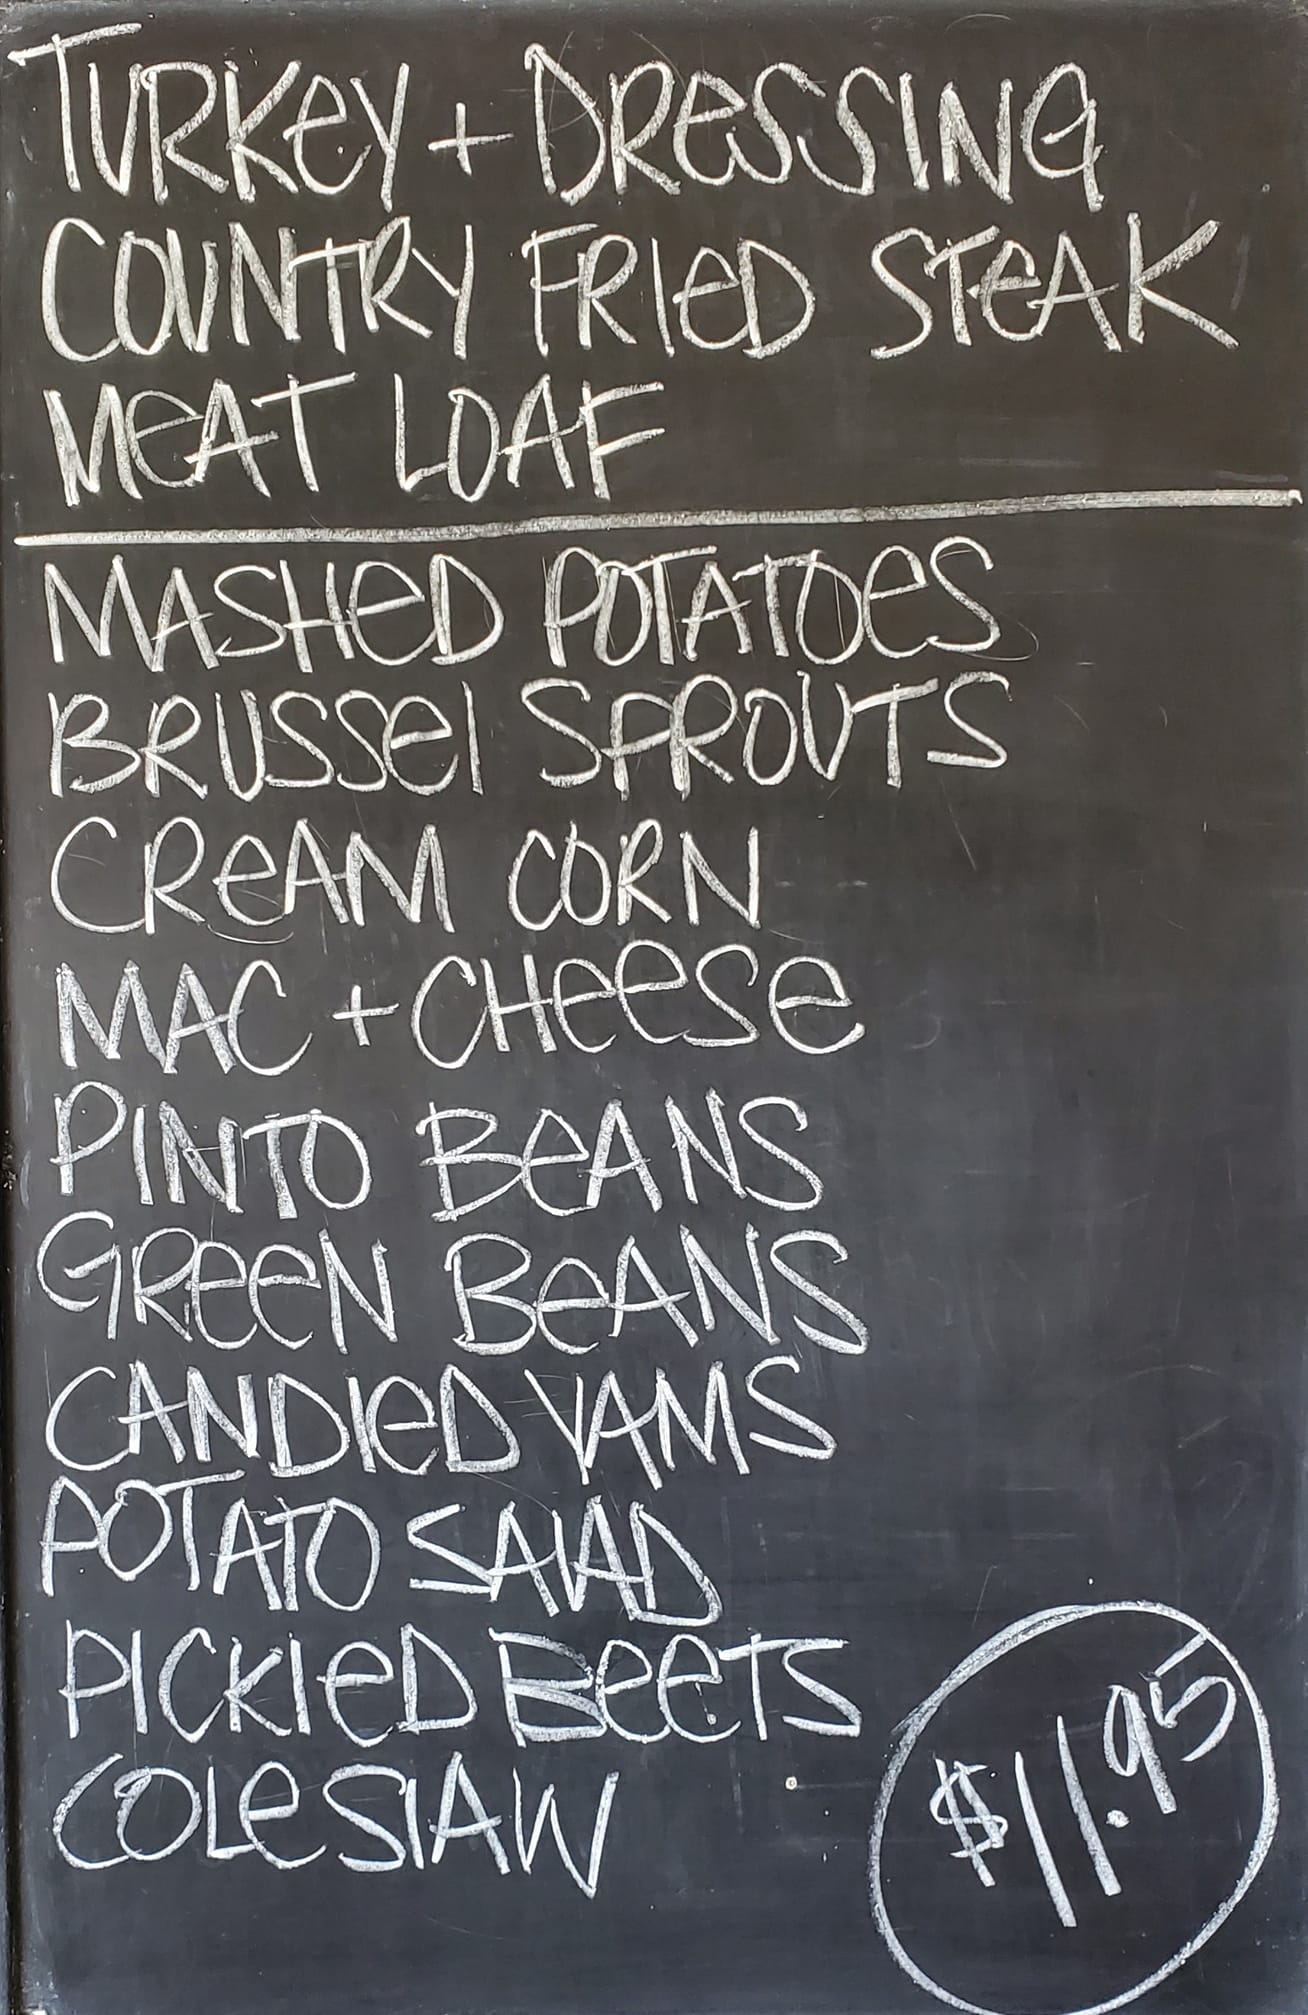 TURKEY + DRESSING
COUNTRY FRIED STEAK
MEAT LOAF
MASHED POTATOES
BRUSSEl SPROUTS
CREAM CORN
MAC + CHEESE
PINTO BEANS
GREEN BEANS
CANDIED YAMS
POTATO SALAD
PICKlED BEETS
COLESlAW
$11.95